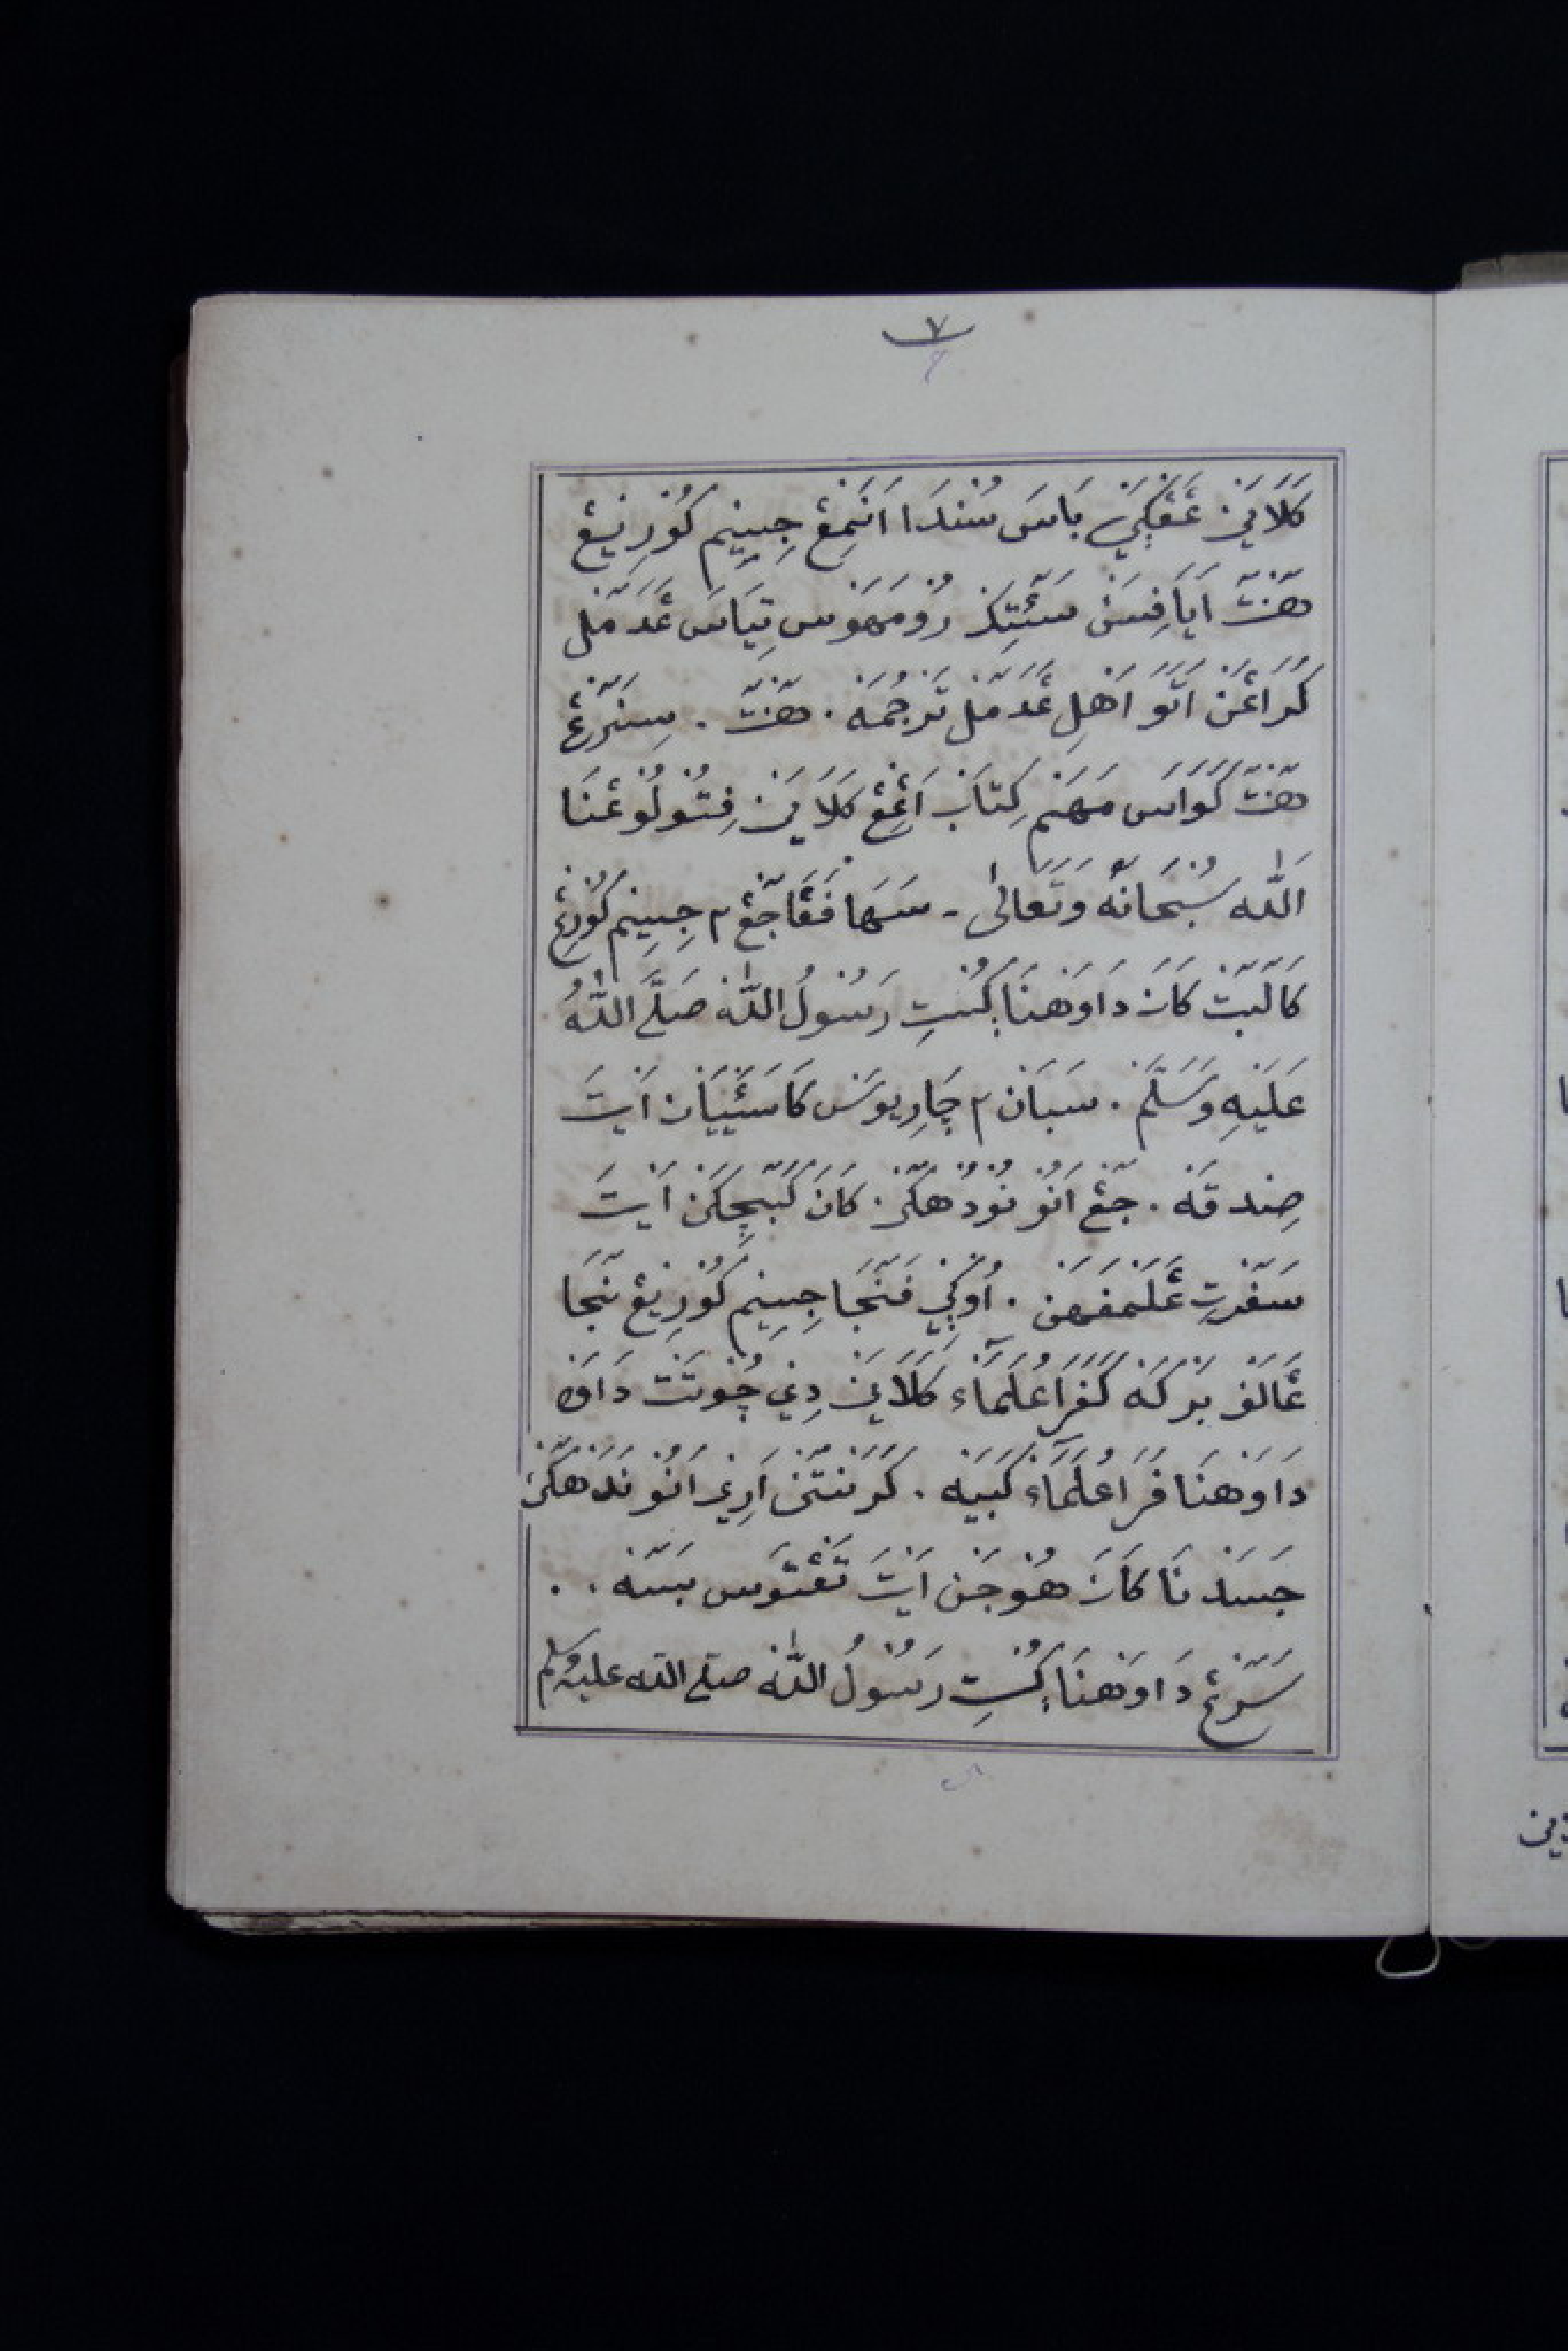 ٧
كَلَايَنْ عَڠْكَيْ بَاسَ سُنْدَا اَنَمِڠْ جِسِيْمِ كُوْرِيْڠْ
هَنْتَ اَيَا فِسَنْ سَئَتِكْ رُوْمَهَوْسْ تِيَاسَ عَدَمَلْ
كَرَاعَنْ اَتَوَ اَهْلِ عَدَمَلْ تَرْجُمَهْ . هَنْتَ . سِنَرَڠْ
هَنْتَ كَوَاسَ مَهَمْ كِتَابْ اَڠِڠْ كَلَايَنْ فِتُوْلُوْعْنَا
اَللّٰه سُبْحَانَهُ وَتَعَالٰى - سَهَا فَڠَاجَڠْ ٢ جِسِيْمِ كُوْرِڠْ
كَالَبَتْ كَانَ دَاوُهْنَا كُسْتِ رَسُوْلُ اللّٰهْ صَلَّ اللّٰهُ
عَلَيْهِ وَسَلَّمَ . سَبَانْ ٢ جَارِيْوسْ كَاسَئِيْيَانْ اَيْتَ
صِدْقَهْ . جَڠْ اَنُوْ نُوْدُهَكَنْ . كَانَ كَبَيْچِكَنْ اَيْتَ
سَفَرْتِ عَلَمْفَهَنْ . اُوْكِيْ فَنَجَا جِسِيْمِ كُوْرِيْڠْ نَجَا
عَالَفْ بَرْكَهْ كَفَرَا عُلَمَاءْ كَلَايَنْ دِيْ چُوْنْتَتْ دَاوَهْ
دَاوُهْنَا فَرَا عُلَمَاءْ كَبَيَهْ . كَرَنْتَنْ اَرِيْ اَنُوْ نَدَهَكَنْ
جَسَدْنَا كَانَ هُوْجَنْ اَيْتَ تَڠْتَوَسْ بَسَهْ . .
سَرَڠْ دَاوُهْنَا كُسْتِ رَسُوْلُ اللّٰهْ صلى الله عليه وسلم